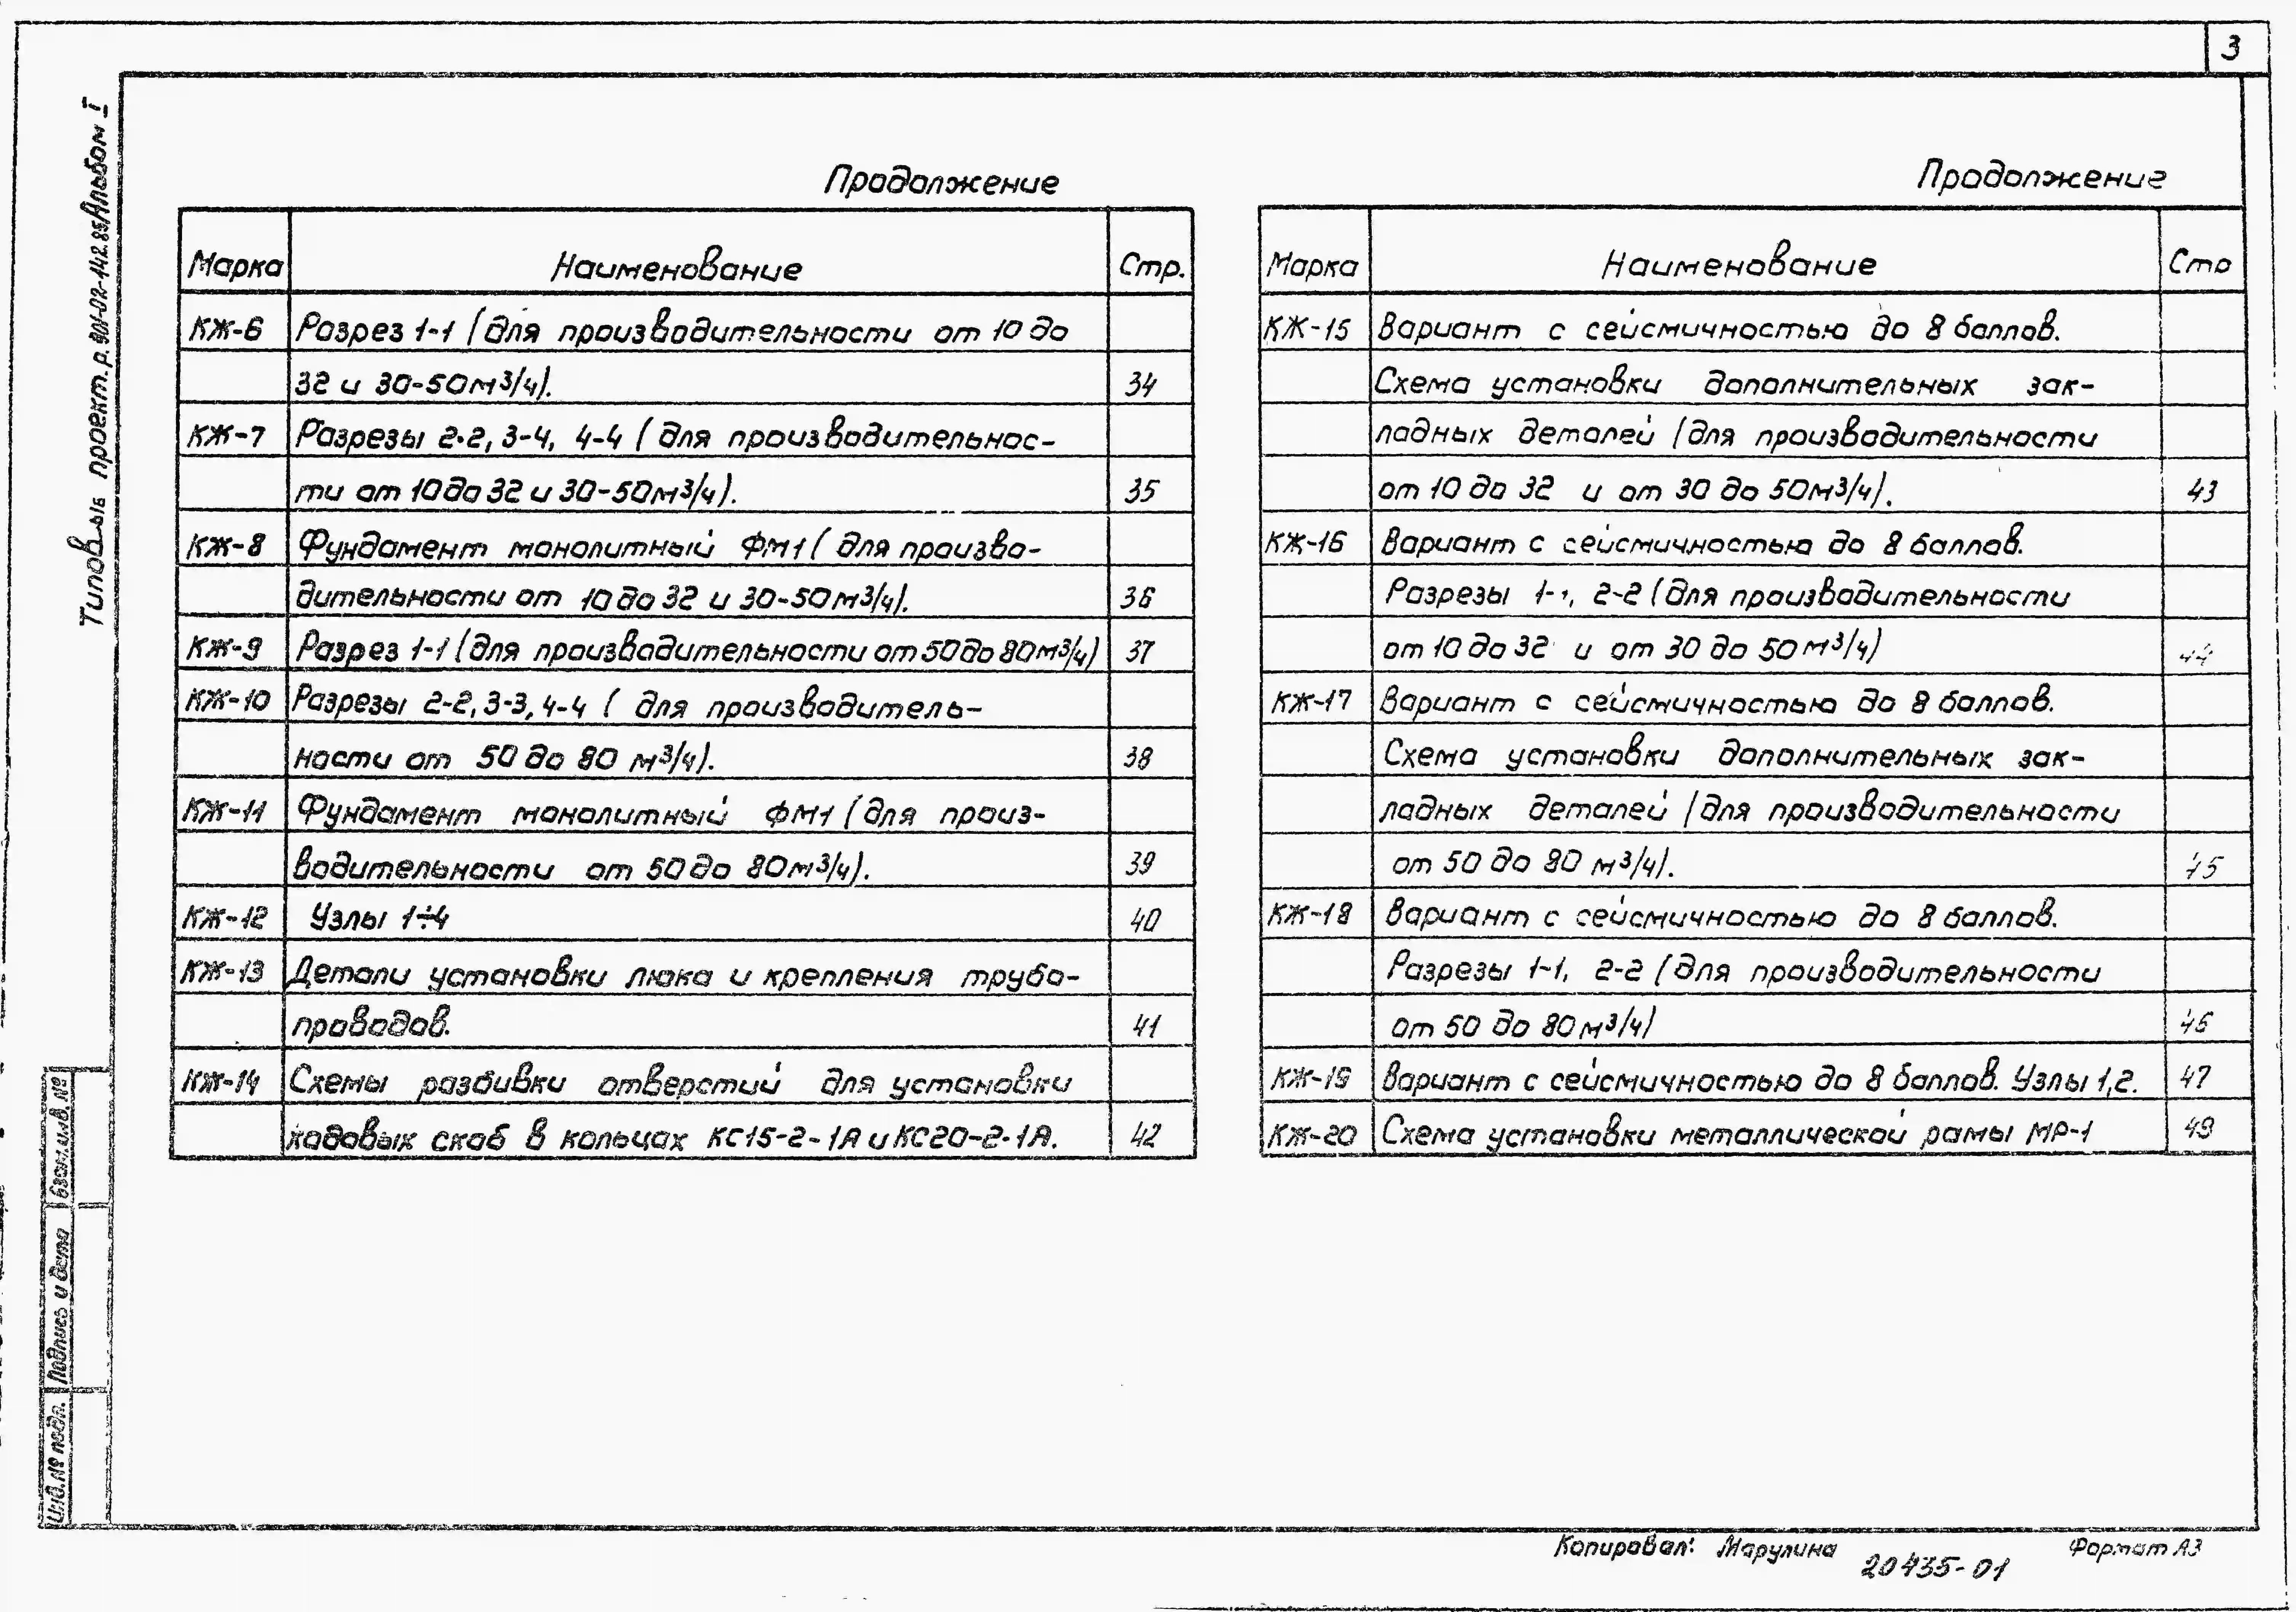 3
Типовые проект. р. 901-02-142.85 Альбом I
Продолжение
Марка Наименование Стр.
КЖ-6 Разрез 1-1 (для производительности от 10 до
32 и 30-50м³/ч). 34
КЖ-7 Разрезы 2-2, 3-4, 4-4 (для производительнос-
ти от 10 до 32 и 30-50м³/ч). 35
КЖ-8 Фундамент монолитный ФМ1 (для произво-
дительности от 10 до 32 и 30-50м³/ч). 36
КЖ-9 Разрез 1-1 (для производительности от 50 до 80м³/ч) 37
КЖ-10 Разрезы 2-2, 3-3, 4-4 (для производитель-
ности от 50 до 80 м³/ч). 38
КЖ-11 Фундамент монолитный ФМ1 (для произ-
водительности от 50 до 80м³/ч). 39
КЖ-12 Узлы 1÷4 40
КЖ-13 Детали установки люка и крепления трубо-
проводов. 41
КЖ-14 Схемы разбивки отверстий для установки
ходовых скоб в кольцах КС15-2-1А и КС20-2-1А. 42
Продолжение
Марка Наименование Стр
КЖ-15 Вариант с сейсмичностью до 8 баллов.
Схема установки дополнительных зак-
ладных деталей (для производительности
от 10 до 32 и от 30 до 50м³/ч). 43
КЖ-16 Вариант с сейсмичностью до 8 баллов.
Разрезы 1-1, 2-2 (для производительности
от 10 до 32 и от 30 до 50 м³/ч) 44
КЖ-17 Вариант с сейсмичностью до 8 баллов.
Схема установки дополнительных зак-
ладных деталей (для производительности
от 50 до 80 м³/ч). 45
КЖ-18 Вариант с сейсмичностью до 8 баллов.
Разрезы 1-1, 2-2 (для производительности
от 50 до 80м³/ч) 46
КЖ-19 Вариант с сейсмичностью до 8 баллов. Узлы 1,2. 47
КЖ-20 Схема установки металлической рамы МР-1 49
Взам.инв.№
Подпись и дата
Инв.№ подл.
Копировал: Марулина
20435-01
Формат А3